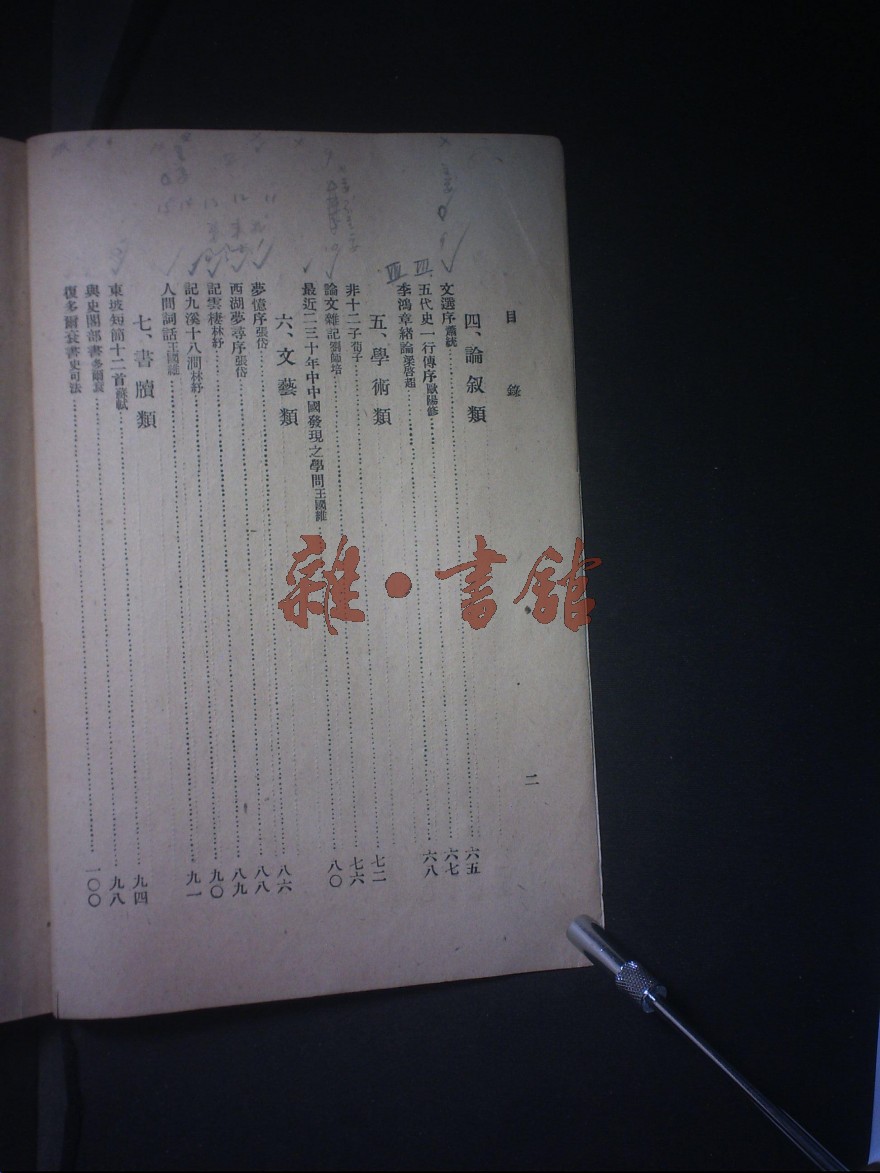 目錄
二
四、論叙類
文選序蕭統……六五
五代史一行傳序歐陽修……六七
李鴻章緒論梁啓超……六八
五、學術類
非十二子荀子……七二
論文雜記劉師培……七六
最近二三十年中中國發現之學問王國維……八〇
六、文藝類
夢憶序張岱……八六
西湖夢尋序張岱……八八
記雲棲林紓……八九
記九溪十八澗林紓……九〇
人間詞話王國維……九一
七、書牘類
東坡短簡十二首蘇軾……九四
與史閣部書多爾袞……九八
復多爾袞書史可法……一〇〇
雜·書館